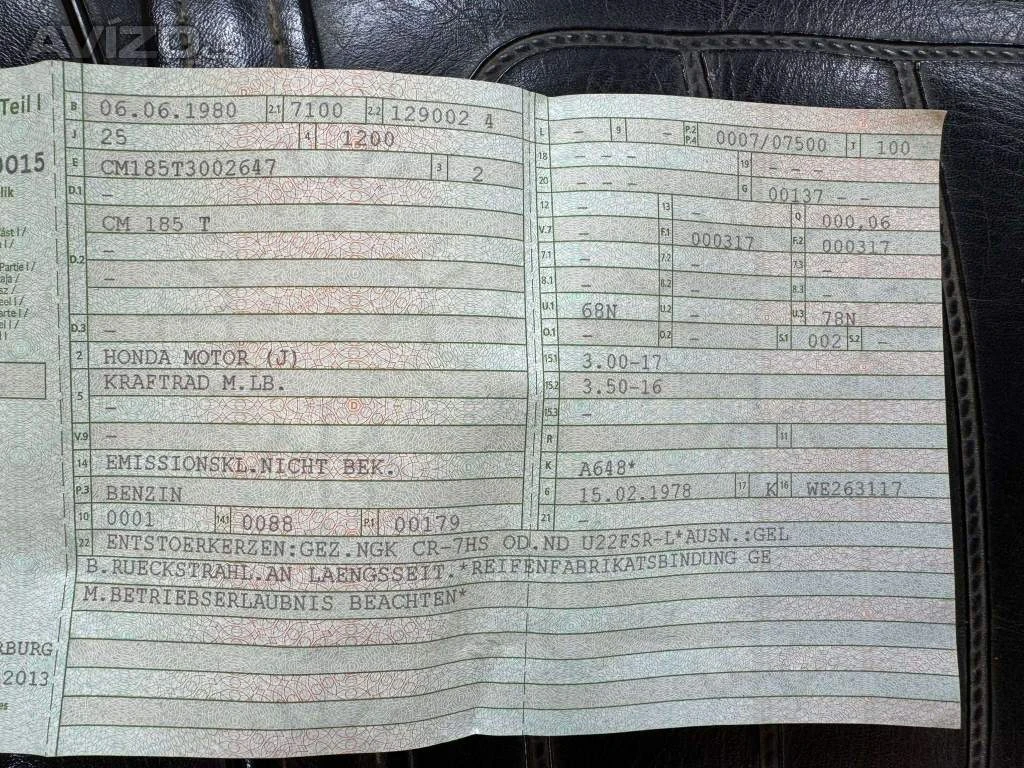 AVÍZO
Teil I
B 06.06.1980 2.1 7100 2.2 129002 4
J 25 4 1200
0015
E CM185T3002647 3 2
D.1 –
CM 185 T
–
D.2 –
D.3 –
2 HONDA MOTOR (J)
5 KRAFTRAD M.LB.
–
V.9 –
14 EMISSIONSKL.NICHT BEK.
P.3 BENZIN
10 0001 14.1 0088 P.1 00179
L – 9 – P.2 P.4 0007/07500 T 100
18 – – – 19 – – –
20 – – – G 00137 – –
12 – 13 – Q 000,06
V.7 – F.1 000317 F.2 000317
7.1 – 7.2 – 7.3 –
8.1 – 8.2 – 8.3 –
U.1 68N U.2 – U.3 78N
O.1 – O.2 – S.1 002 S.2 –
15.1 3.00-17
15.2 3.50-16
15.3 –
R 11
K A648*
6 15.02.1978 17 K 16 WE263117
21 –
22 ENTSTOERKERZEN:GEZ.NGK CR-7HS OD.ND U22FSR-L*AUSN.:GEL
B.RUECKSTRAHL.AN LAENGSSEIT.*REIFENFABRIKATSBINDUNG GE
M.BETRIEBSERLAUBNIS BEACHTEN*
RBURG
2013